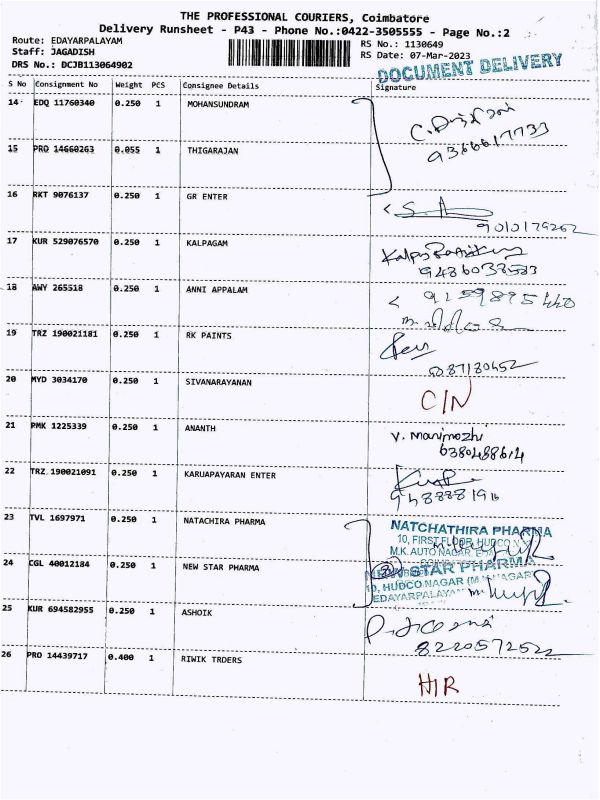 THE PROFESSIONAL COURIERS, Coimbatore
Delivery Runsheet - P43 - Phone No.:0422-3505555 - Page No.:2
Route: EDAYARPALAYAM
Staff: JAGADISH
DRS No.: DCJB113064902
RS No.: 1130649
RS Date: 07-Mar-2023
DOCUMENT DELIVERY
S No Consignment No Weight PCS Consignee Details Signature
14 EDQ 11760340 0.250 1 MOHANSUNDRAM
9366617733
15 PRO 14660263 0.055 1 THIGARAJAN
16 RKT 9076137 0.250 1 GR ENTER
9010179262
17 KUR 529076570 0.250 1 KALPAGAM
9486038533
18 AWY 265518 0.250 1 ANNI APPALAM
9159895440
19 TRZ 190021181 0.250 1 RK PAINTS
20 MYD 3034170 0.250 1 SIVANARAYANAN
C/N
21 PMK 1225339 0.250 1 ANANTH
V. Manimozhi
6380488614
22 TRZ 190021091 0.250 1 KARUAPAYARAN ENTER
23 TVL 1697971 0.250 1 NATACHIRA PHARMA
NATCHATHIRA PHARMA
10, FIRST FLOOR, HUDCO
M.K. AUTO NAGAR
24 CGL 40012184 0.250 1 NEW STAR PHARMA
NEW STAR PHARMA
10, HUDCO NAGAR
EDAYARPALAYAM
25 KUR 694582955 0.250 1 ASHOIK
8220572522
26 PRO 14439717 0.400 1 RIWIK TRDERS
H/R